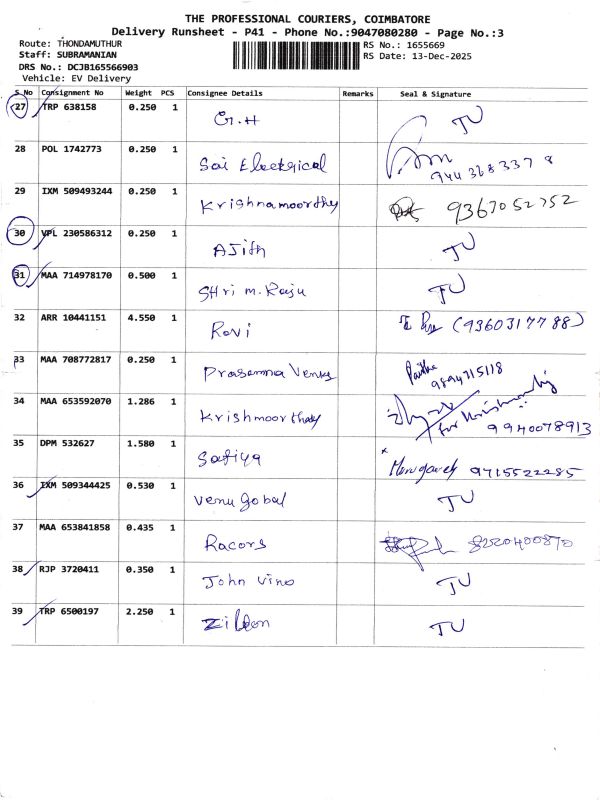 THE PROFESSIONAL COURIERS, COIMBATORE
Delivery Runsheet - P41 - Phone No.:9047080280 - Page No.:3
Route: THONDAMUTHUR RS No.: 1655669
Staff: SUBRAMANIAN RS Date: 13-Dec-2025
DRS No.: DCJB165566903
Vehicle: EV Delivery
S.No Consignment No Weight PCS Consignee Details Remarks Seal & Signature
27 TRP 638158 0.250 1 G.H TU
28 POL 1742773 0.250 1 Sai Electrical 9443683378
29 IXM 509493244 0.250 1 Krishnamoorthy 9367052752
30 VPL 230586312 0.250 1 AJith TU
31 MAA 714978170 0.500 1 SHri m. Raju TU
32 ARR 10441151 4.550 1 Ravi (9360317788)
33 MAA 708772817 0.250 1 Prasanna Venks 9894715118
34 MAA 653592070 1.286 1 Krishmoorthay for 9940078913
35 DPM 532627 1.580 1 Safiya 9715522285
36 IXM 509344425 0.530 1 Venu gobal TU
37 MAA 653841858 0.435 1 Racors 8220400870
38 RJP 3720411 0.350 1 John Vino TU
39 TRP 6500197 2.250 1 TU